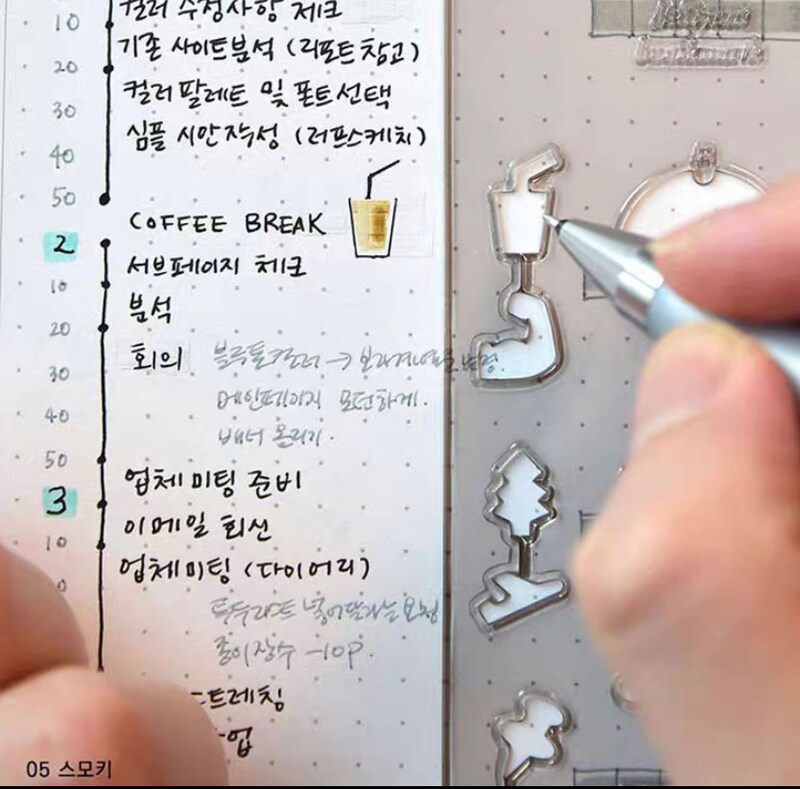 10 컬러 수정사항 체크
기존 사이트분석 (리포트 참고)
20
컬러 팔레트 및 폰트 선택
30
심플 시안작성 (러프스케치)
40
50
COFFEE BREAK
2
서브페이지 체크
10
분석
20
회의 블루톤컬러 →
30
메인페이지 모던하게.
40
배너 올리기.
50
업체미팅 준비
3
이메일 회신
10
업체미팅 (다이어리)
0
종이장수 -10P.
스트레칭
업
05 스모키